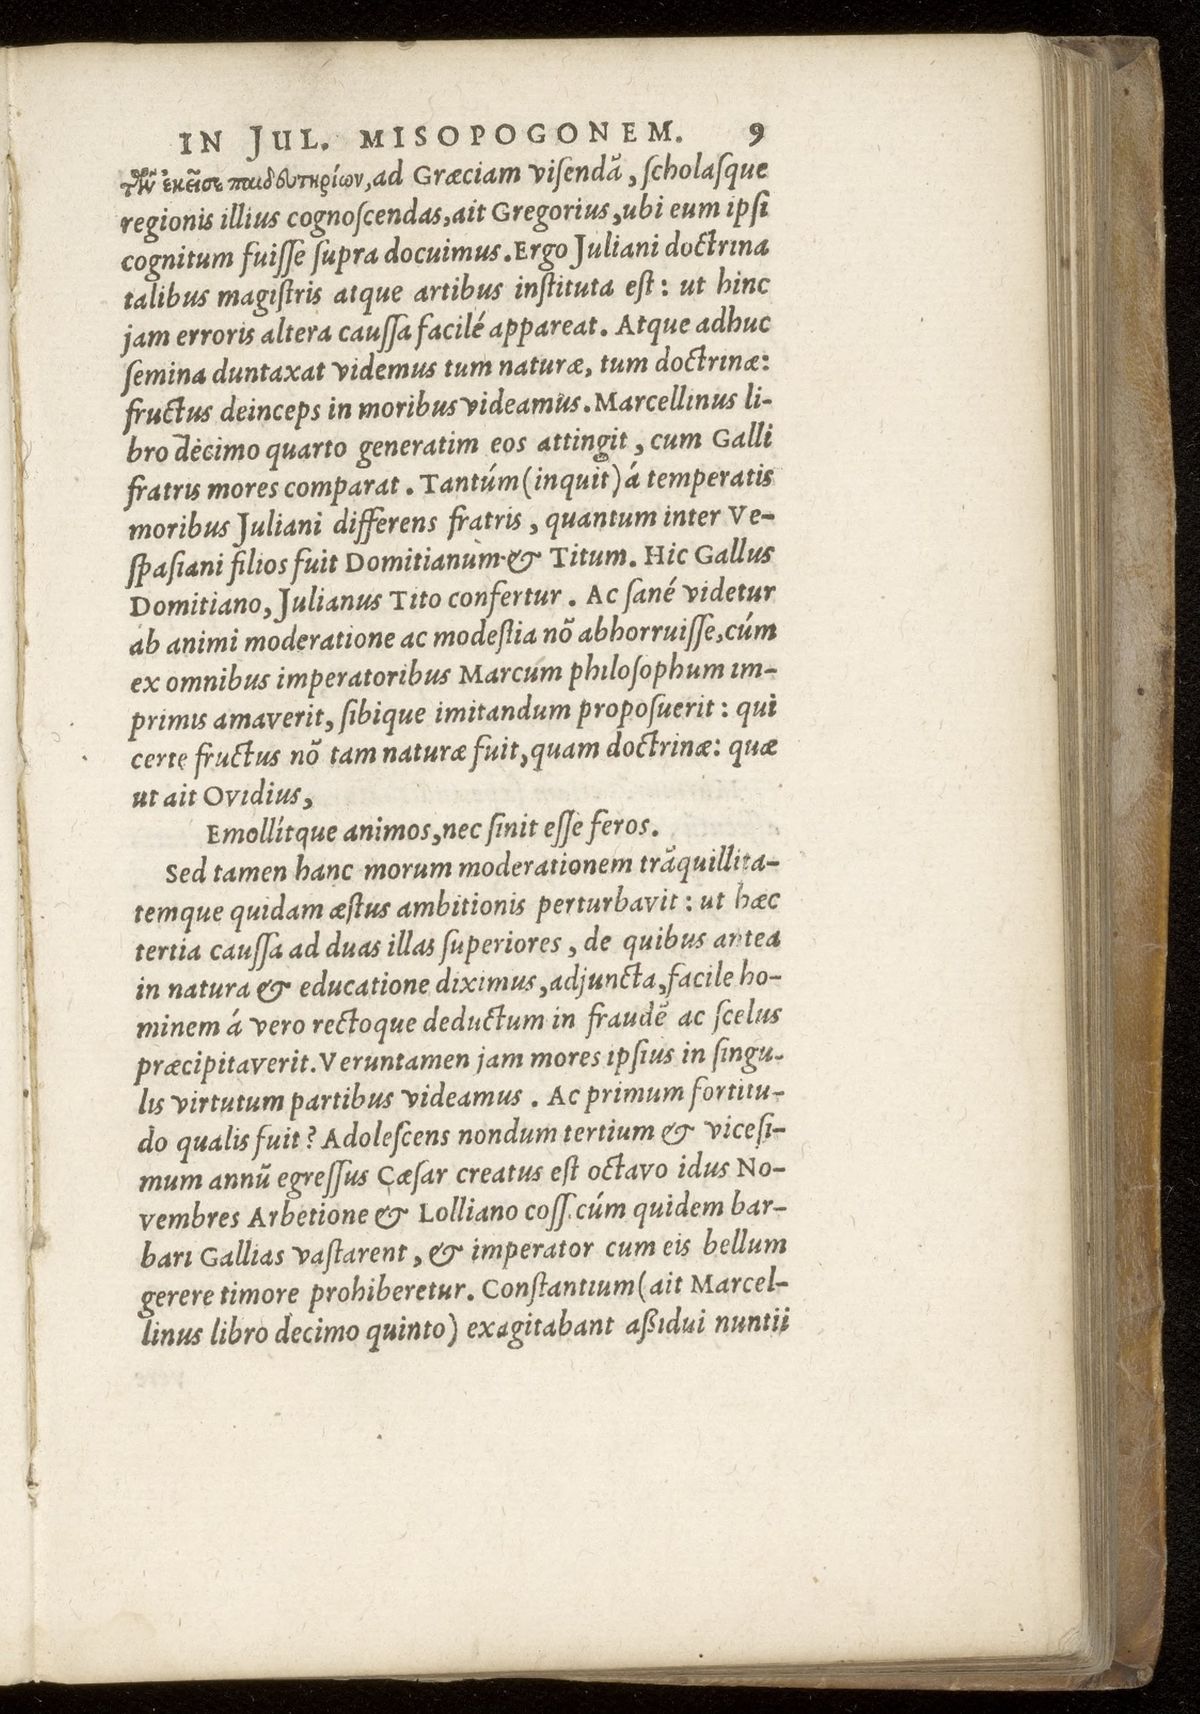 IN JUL. MISOPOGONEM. 9
τῶν ἐκεῖσε παιδευτηρίων, ad Græciam visendā, scholasque
regionis illius cognoscendas, ait Gregorius, ubi eum ipsi
cognitum fuisse supra docuimus. Ergo Juliani doctrina
talibus magistris atque artibus instituta est: ut hinc
jam erroris altera caussa facilé appareat. Atque adhuc
semina duntaxat videmus tum naturæ, tum doctrinæ:
fructus deinceps in moribus videamus. Marcellinus li-
bro decimo quarto generatim eos attingit, cum Galli
fratris mores comparat. Tantúm (inquit) á temperatis
moribus Juliani differens fratris, quantum inter Ve-
spasiani filios fuit Domitianum & Titum. Hic Gallus
Domitiano, Julianus Tito confertur. Ac sané videtur
ab animi moderatione ac modestia nō abhorruisse, cúm
ex omnibus imperatoribus Marcum philosophum im-
primis amaverit, sibique imitandum proposuerit: qui
certe fructus nō tam naturæ fuit, quam doctrinæ: quæ
ut ait Ovidius,
Emollítque animos, nec sinit esse feros.
Sed tamen hanc morum moderationem trāquillita-
temque quidam æstus ambitionis perturbavit: ut hæc
tertia caussa ad duas illas superiores, de quibus antea
in natura & educatione diximus, adjuncta, facile ho-
minem á vero rectoque deductum in fraudē ac scelus
præcipitaverit. Veruntamen jam mores ipsius in singu-
lis virtutum partibus videamus. Ac primum fortitu-
do qualis fuit? Adolescens nondum tertium & vicesi-
mum annū egressus Cæsar creatus est octavo idus No-
vembres Arbetione & Lolliano coss. cúm quidem bar-
bari Gallias vastarent, & imperator cum eis bellum
gerere timore prohiberetur. Constantium (ait Marcel-
linus libro decimo quinto) exagitabant aßidui nuntii